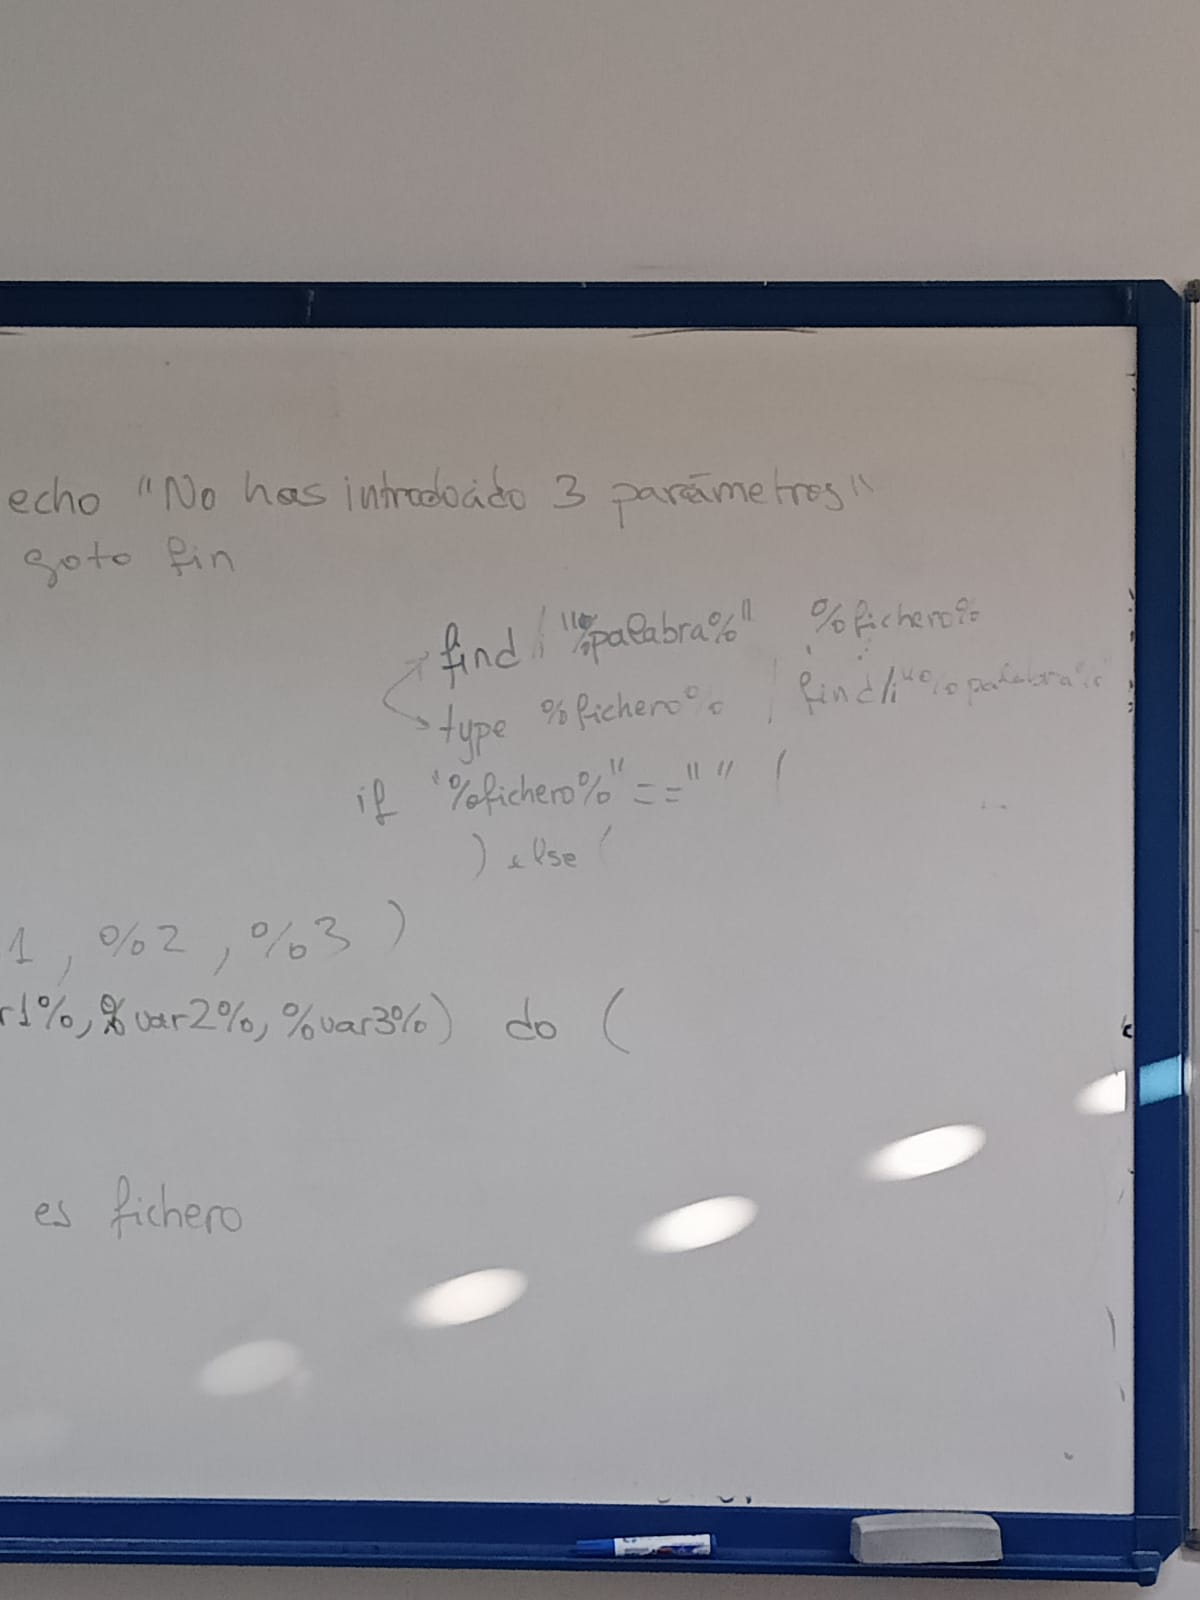 echo "No has introducido 3 parámetros"
goto fin
find "%palabra%" %fichero%
type %fichero% | find /i "%palabra%"
if "%fichero%"=="" (
) else (
1, %2, %3)
r1%, %var2%, %var3%) do (
es fichero